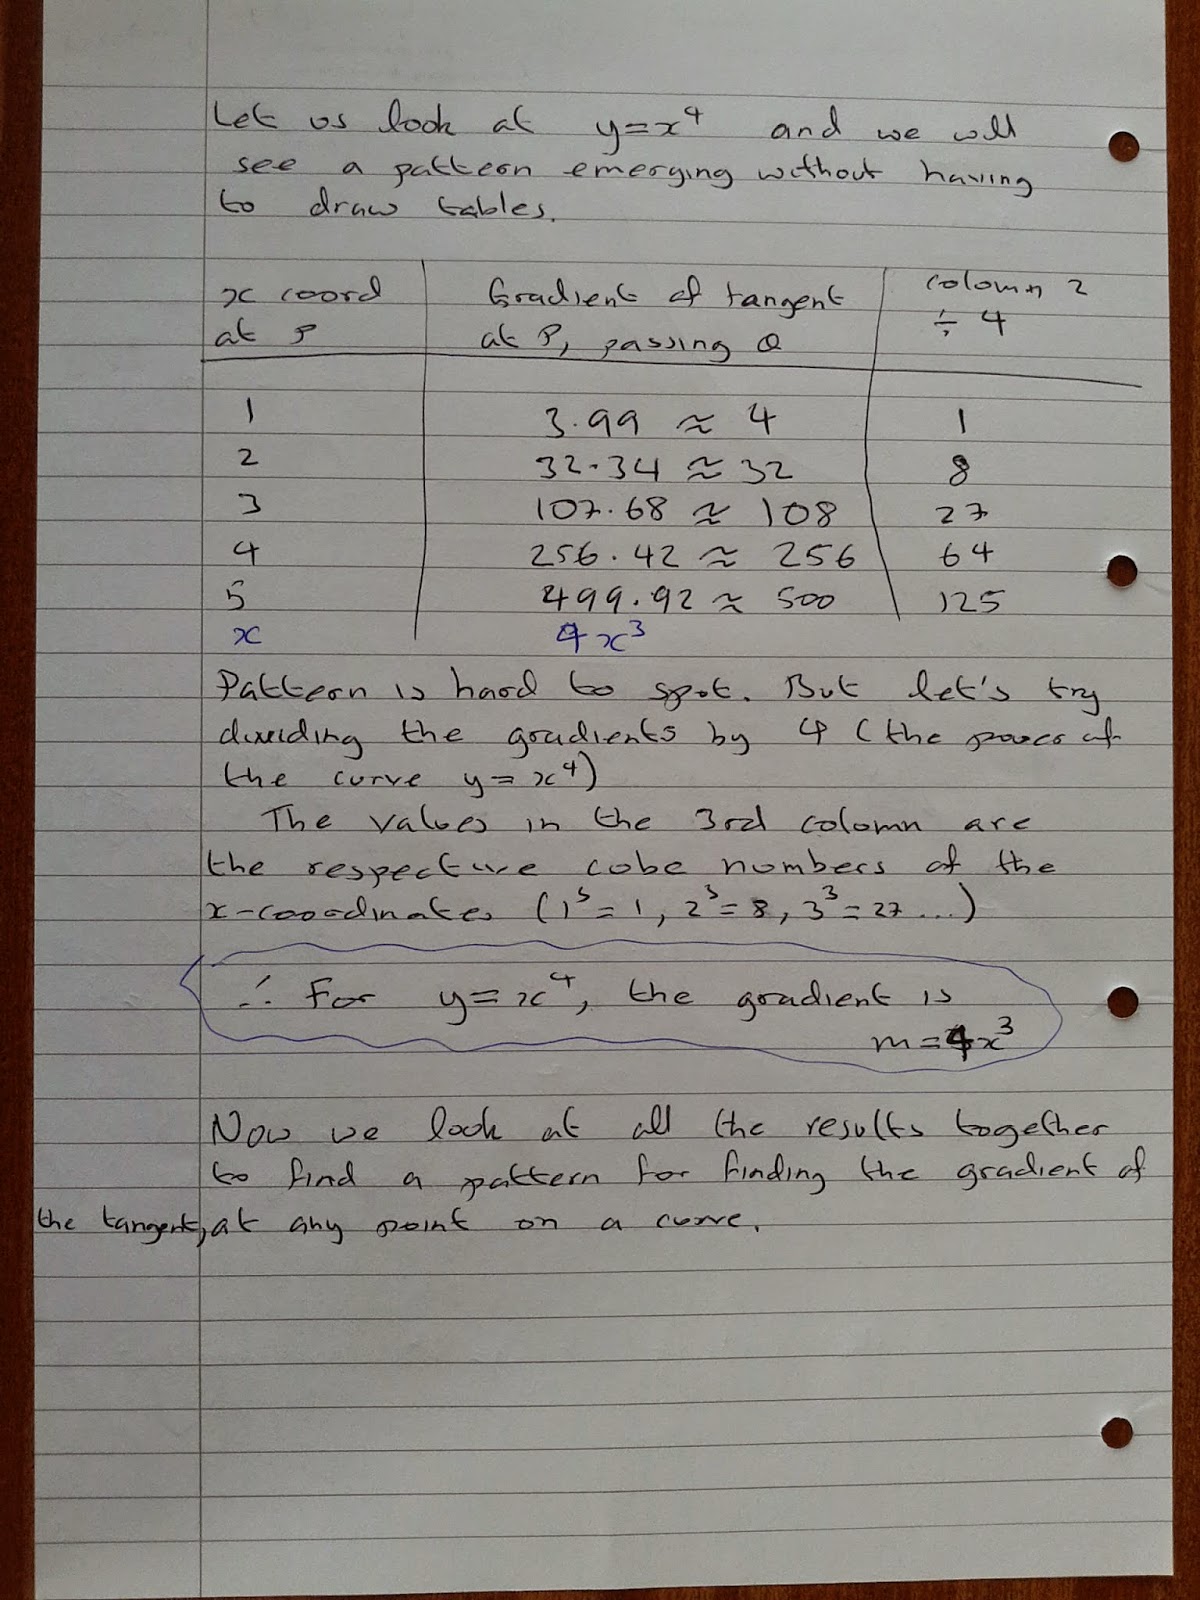 Let us look at y=x⁴ and we will
see a pattern emerging without having
to draw tables.
x coord at P | Gradient of tangent at P, passing Q | column 2 ÷ 4
1 | 3.99 ≈ 4 | 1
2 | 32.34 ≈ 32 | 8
3 | 107.68 ≈ 108 | 27
4 | 256.42 ≈ 256 | 64
5 | 499.92 ≈ 500 | 125
x | 4x³
Pattern is hard to spot. But let's try
dividing the gradients by 4 (the power of
the curve y=x⁴)
The values in the 3rd column are
the respective cube numbers of the
x-coordinates (1³=1, 2³=8, 3³=27...)
∴ For y=x⁴, the gradient is
m=4x³
Now we look at all the results together
to find a pattern for finding the gradient of
the tangent, at any point on a curve.